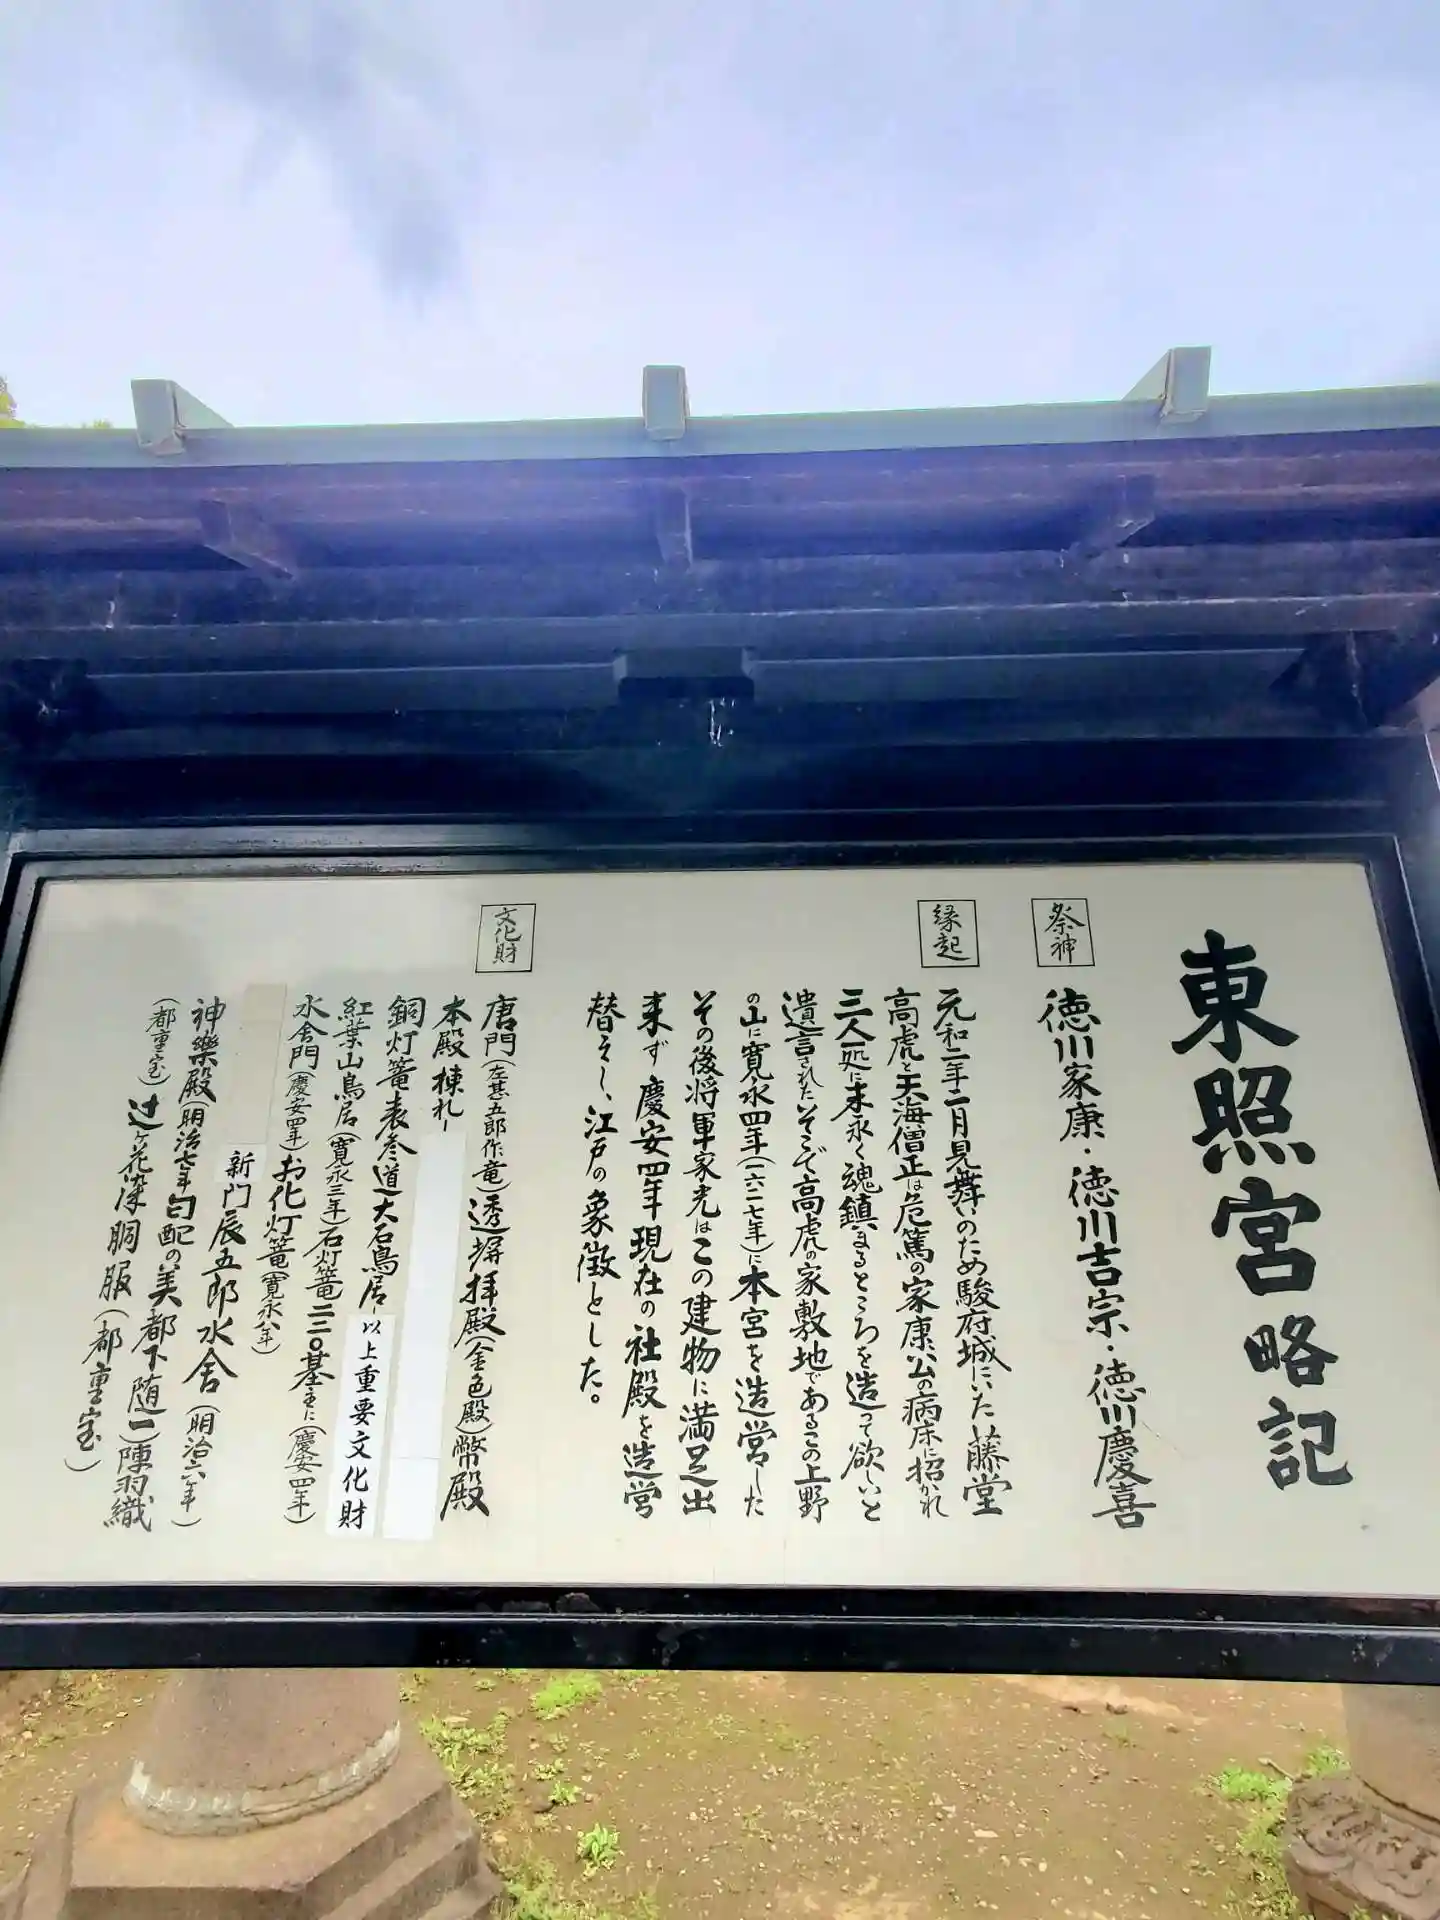 東照宮略記
祭神
徳川家康・徳川吉宗・徳川慶喜
縁起
元和二年二月見舞いのため駿府城にいた藤堂
高虎と天海僧正は危篤の家康公の病床に招かれ
三人処に末永く魂鎮まるところを造って欲しいと
遺言されたそこで高虎の家敷地であるこの上野
の山に寛永四年(一六二七年)に本宮を造営した
その後将軍家光はこの建物に満足出
来ず慶安四年現在の社殿を造営
替えし、江戸の象徴とした。
文化財
唐門(左甚五郎作竜)透塀拝殿(金色殿)幣殿
本殿棟札
銅灯篭表参道大石鳥居 以上重要文化財
紅葉山鳥居(寛永三年)石灯篭二二〇基主に(慶安四年)
水舎門(慶安四年)お化灯篭(寛永八年)
新門辰五郎水舎(明治六年)
神樂殿(明治七年勾配の美都下随一)陣羽織
(都重宝)辻ヶ花染胴服(都重宝)